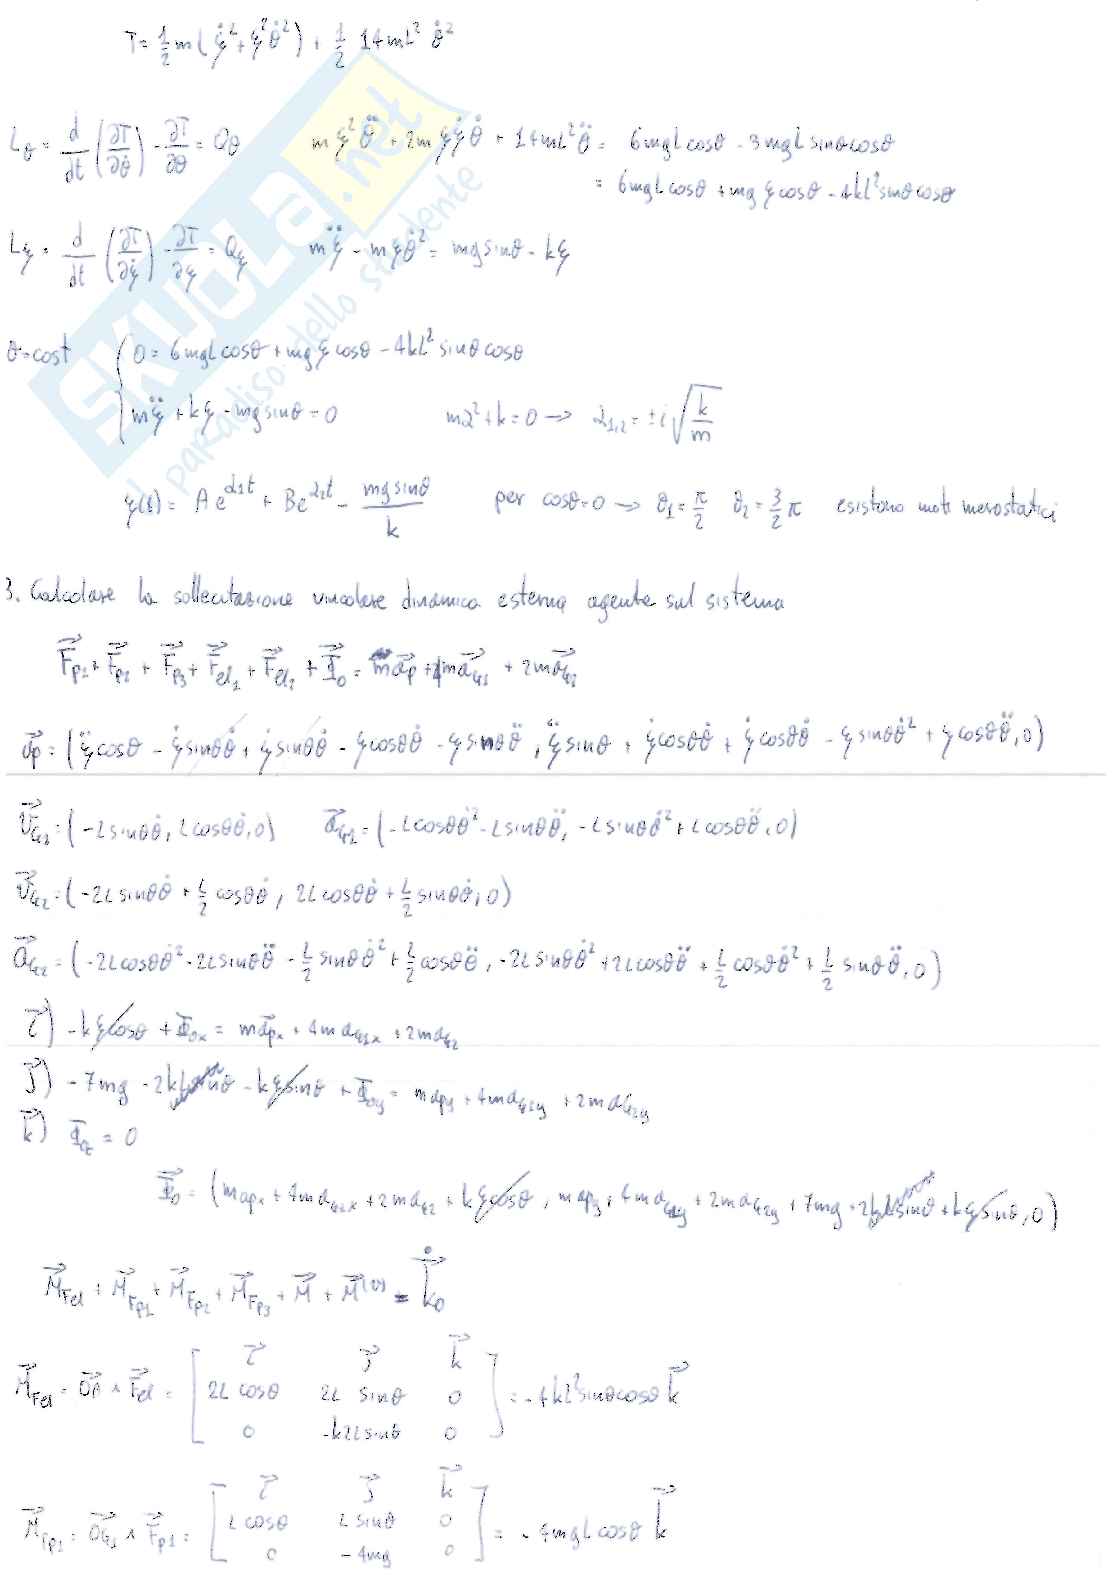 T = 1/2 m(ξ̇² + ξ²θ̇²) + 1/2 14mL² θ̇²
L_θ = d/dt (∂T/∂θ̇) - ∂T/∂θ = Q_θ   mξ²θ̈ + 2mξξ̇θ̇ + 14mL²θ̈ = 6mgLcosθ - 3mgLsinθcosθ
= 6mgLcosθ + mgξcosθ - 4kL²sinθcosθ
L_ξ = d/dt (∂T/∂ξ̇) - ∂T/∂ξ = Q_ξ   mξ̈ - mξθ̇² = mgsinθ - kξ
θ=cost { 0 = 6mgLcosθ + mgξcosθ - 4kL²sinθcosθ
mξ̈ + kξ - mgsinθ = 0   mλ² + k = 0 → λ₁,₂ = ±i√(k/m)
ξ(t) = A e^(λ₁t) + B e^(λ₂t) - mgsinθ/k   per cosθ=0 → θ₁ = π/2 θ₂ = 3/2 π esistono moti merostatici
3. Calcolare la sollecitazione vincolare dinamica esterna agente sul sistema
F⃗p₁ + F⃗p₂ + F⃗p₃ + F⃗el₁ + F⃗el₂ + Φ⃗₀ = ma⃗p + 4ma⃗G₁ + 2ma⃗G₂
a⃗p = (ξ̈cosθ - ξ̇sinθθ̇ + ξ̇sinθθ̇ - ξcosθθ̇ - ξsinθθ̈, ξ̈sinθ + ξ̇cosθθ̇ + ξ̇cosθθ̇ - ξsinθθ̇² + ξcosθθ̈, 0)
v⃗G₁ = (-Lsinθθ̇, Lcosθθ̇, 0)   a⃗G₁ = (-Lcosθθ̇² - Lsinθθ̈, -Lsinθθ̇² + Lcosθθ̈, 0)
v⃗G₂ = (-2Lsinθθ̇ + L/2 cosθθ̇, 2Lcosθθ̇ + L/2 sinθθ̇, 0)
a⃗G₂ = (-2Lcosθθ̇² - 2Lsinθθ̈ - L/2 sinθθ̇² + L/2 cosθθ̈, -2Lsinθθ̇² + 2Lcosθθ̈ + L/2 cosθθ̇² + L/2 sinθθ̈, 0)
i⃗) -kξcosθ + Φ₀x = ma⃗px + 4maG₁x + 2maG₂
j⃗) -7mg - 2kLsinθ - kξsinθ + Φ₀y = mapy + 4maG₂y + 2maG₂y
k⃗) Φ₀z = 0
Φ⃗₀ = (mapx + 4maG₂x + 2maG₂ + kξcosθ, mapy + 4maG₁y + 2maG₂y + 7mg + 2kLsinθ + kξsinθ, 0)
M⃗Fel + M⃗Fp₁ + M⃗Fp₂ + M⃗Fp₃ + M⃗ + M⃗^(v) = K̇⃗₀
i⃗ j⃗ k⃗
M⃗Fel = OA⃗ ∧ F⃗el = [2Lcosθ 2L sinθ 0] = -4kL²sinθcosθ k⃗
0 -k2Lsinθ 0
i⃗ j⃗ k⃗
M⃗Fp₁ = OG⃗₁ ∧ F⃗p₁ = [Lcosθ Lsinθ 0] = -4mgLcosθ k⃗
0 -4mg 0
SKUOLA.net
il paradiso dello studente